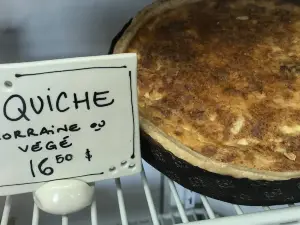 QUICHE
LORRAINE ou
VÉGÉ
16 50 $